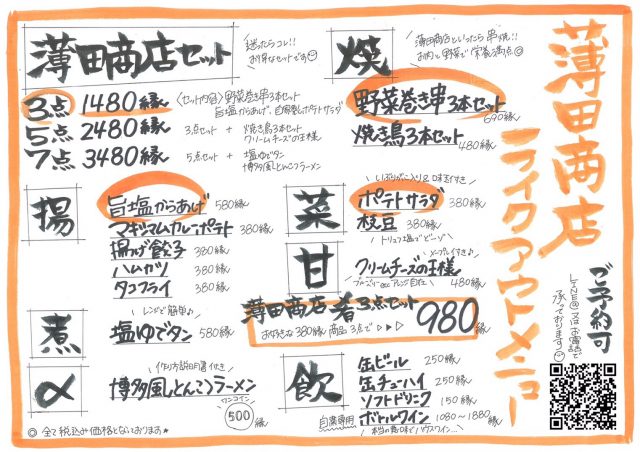 薄田商店
テイクアウトメニュー
ご予約可
LINE@又はお電話で
承っております
薄田商店セット
迷ったらコレ!!
お得なセットです
3点 1480縁
〈セット内容〉野菜巻き串3本セット
旨塩からあげ、自家製ポテトサラダ
5点 2480縁
3点セット + 焼き鳥3本セット
クリームチーズの王様
7点 3480縁
5点セット + 塩ゆでタン
博多風とんこつラーメン
焼
薄田商店といったら串焼!!
お肉と野菜で栄養満点
野菜巻き串3本セット
690縁
焼き鳥3本セット
480縁
揚
旨塩からあげ 580縁
マキシマムカレーポテト 380縁
揚げ餃子 380縁
ハムカツ 380縁
タコフライ 380縁
菜
いぶりがっこ入り♪ 味玉付き
ポテトサラダ 380縁
枝豆 380縁
トリュフ塩でどーぞ
甘
メープルナイ付き♪
クリームチーズの王様
480縁
薄田商店 肴3点セット
お好きな380縁商品3点で▷▷▷ 980縁
煮
レンジで簡単♪
塩ゆでタン 580縁
〆
作り方説明書付き
博多風とんこつラーメン
ワンコイン
500縁
飲
缶ビール 250縁
缶チューハイ 250縁
ソフトドリンク 150縁
ボトルワイン 1080〜1880縁
本当の意味でハウスワイン…
◎全て税込み価格となっております★